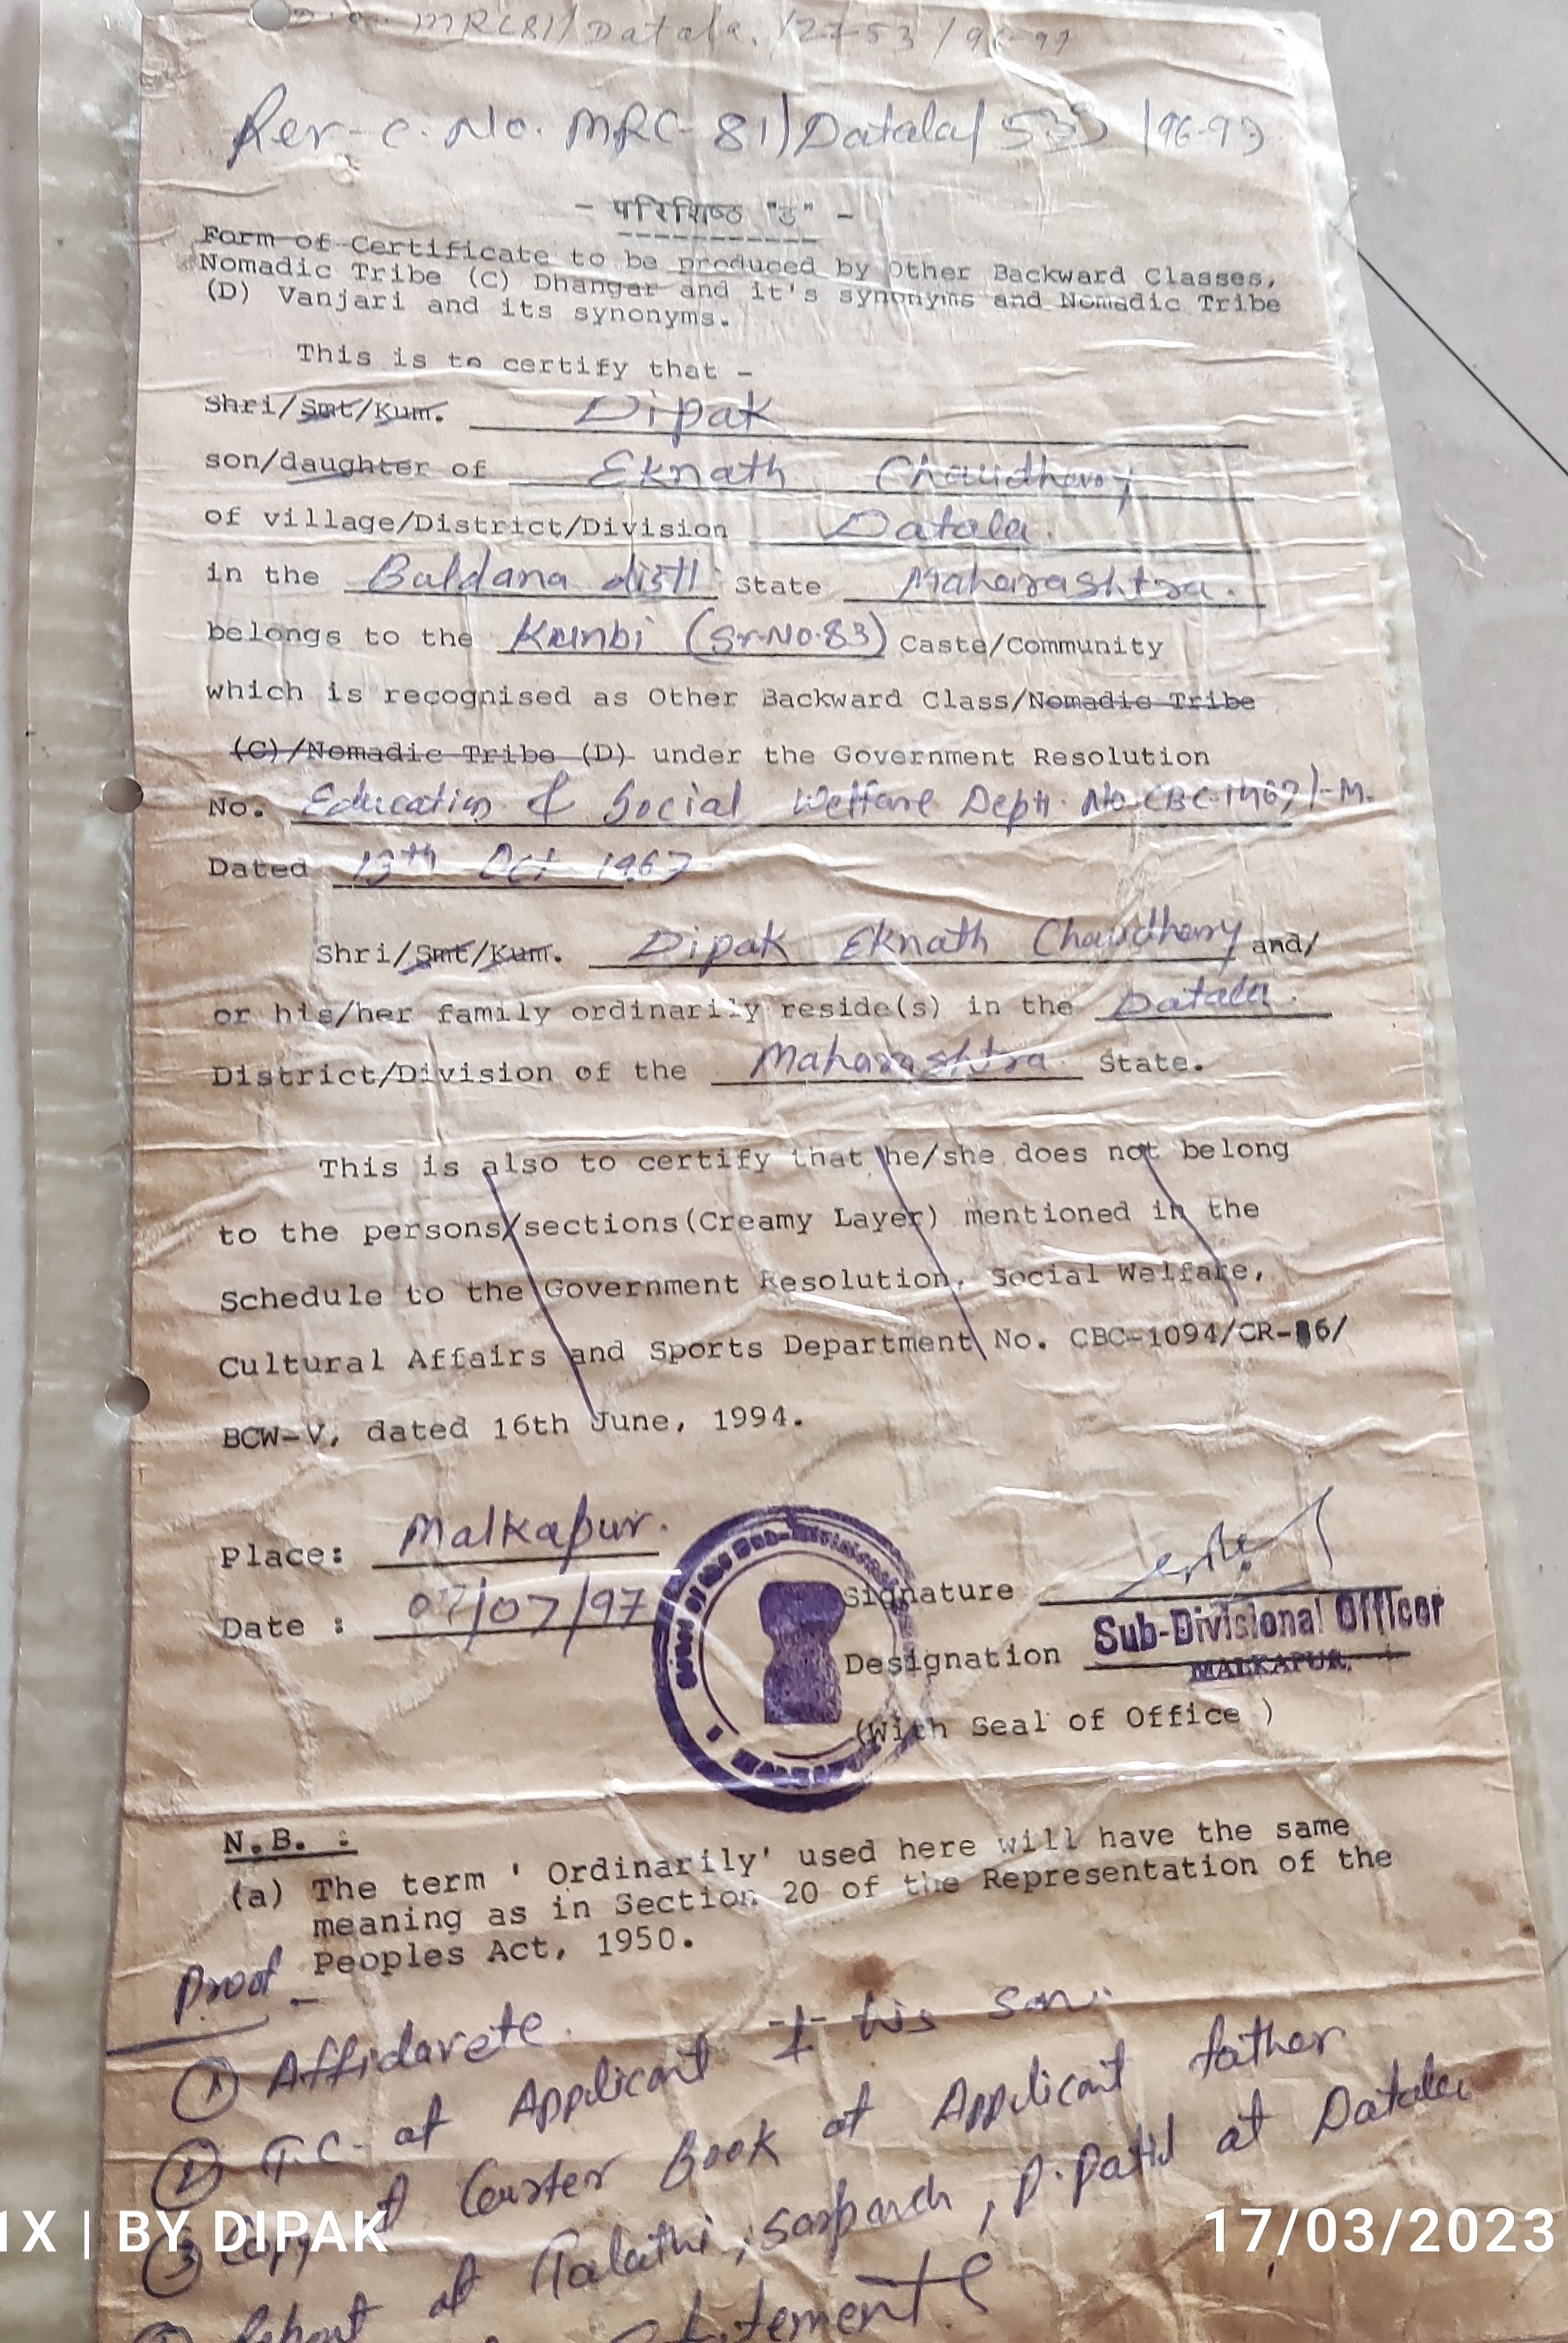 MRC81/Datala./2753/96-97
Rev-c.No. MRC-81/Datala/533/96-97
- परिशिष्ठ "ड" -
Form of Certificate to be produced by Other Backward Classes,
Nomadic Tribe (C) Dhangar and it's synonyms and Nomadic Tribe
(D) Vanjari and its synonyms.
This is to certify that -
Shri/Smt/Kum. Dipak
son/daughter of Eknath Chaudhary
of village/District/Division Datala.
in the Buldana distt. State Maharashtra.
belongs to the Kunbi (Sr.No.83) Caste/Community
which is recognised as Other Backward Class/Nomadic Tribe
(C)/Nomadic Tribe (D) under the Government Resolution
No. Education & Social Welfare Deptt. No.CBC-1467/-M.
Dated 13th Oct 1967
Shri/Smt/Kum. Dipak Eknath Chaudhary and/
or his/her family ordinarily reside(s) in the Datala.
District/Division of the Maharashtra State.
This is also to certify that he/she does not belong
to the persons/sections(Creamy Layer) mentioned in the
Schedule to the Government Resolution, Social Welfare,
Cultural Affairs and Sports Department No. CBC-1094/CR-86/
BCW-V, dated 16th June, 1994.
Place: Malkapur.
Signature
Date : 07/07/97
Sub-Divisional Officer
Designation MALKAPUR.
(With Seal of Office )
N.B. :
(a) The term ' Ordinarily' used here will have the same
meaning as in Section 20 of the Representation of the
Peoples Act, 1950.
Proof -
① Affidavete.
② T.C. of Applicant & his son.
③ Copy of Book of Applicant father
Report of Talathi, Sarpanch, P.Patil at Datala
Statement
1X | BY DIPAK
17/03/2023